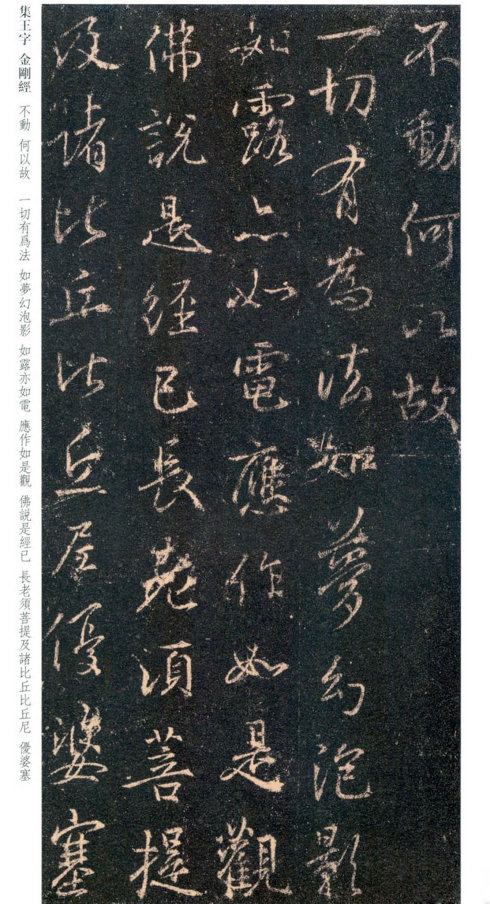 不動何以故
一切有為法如夢幻泡影
如露亦如電應作如是觀
佛說是經已長老須菩提
及諸比丘比丘尼優婆塞
集王字 金剛經 不動 何以故 一切有爲法 如夢幻泡影 如露亦如電 應作如是觀 佛說是經已 長老須菩提及諸比丘比丘尼 優婆塞